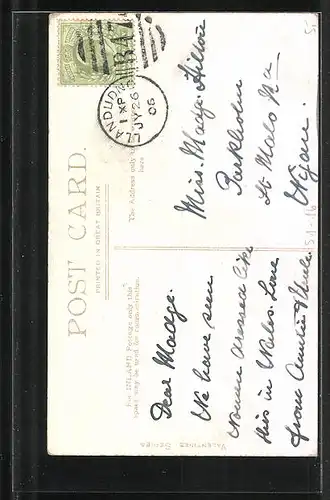 POST CARD.
PRINTED IN GREAT BRITAIN
For INLAND Postage only this
space may be used for communication.
The Address only to
here
LLANDUDNO
1 XP M
JY 26
06
BA7
Dear Madge.
We have seen
women dressed like
this in Wales. Love
from Auntie & Uncle
Miss. Madge Hilton
Parkholm
St Malo Rd
Wigan.
VALENTINES SERIES